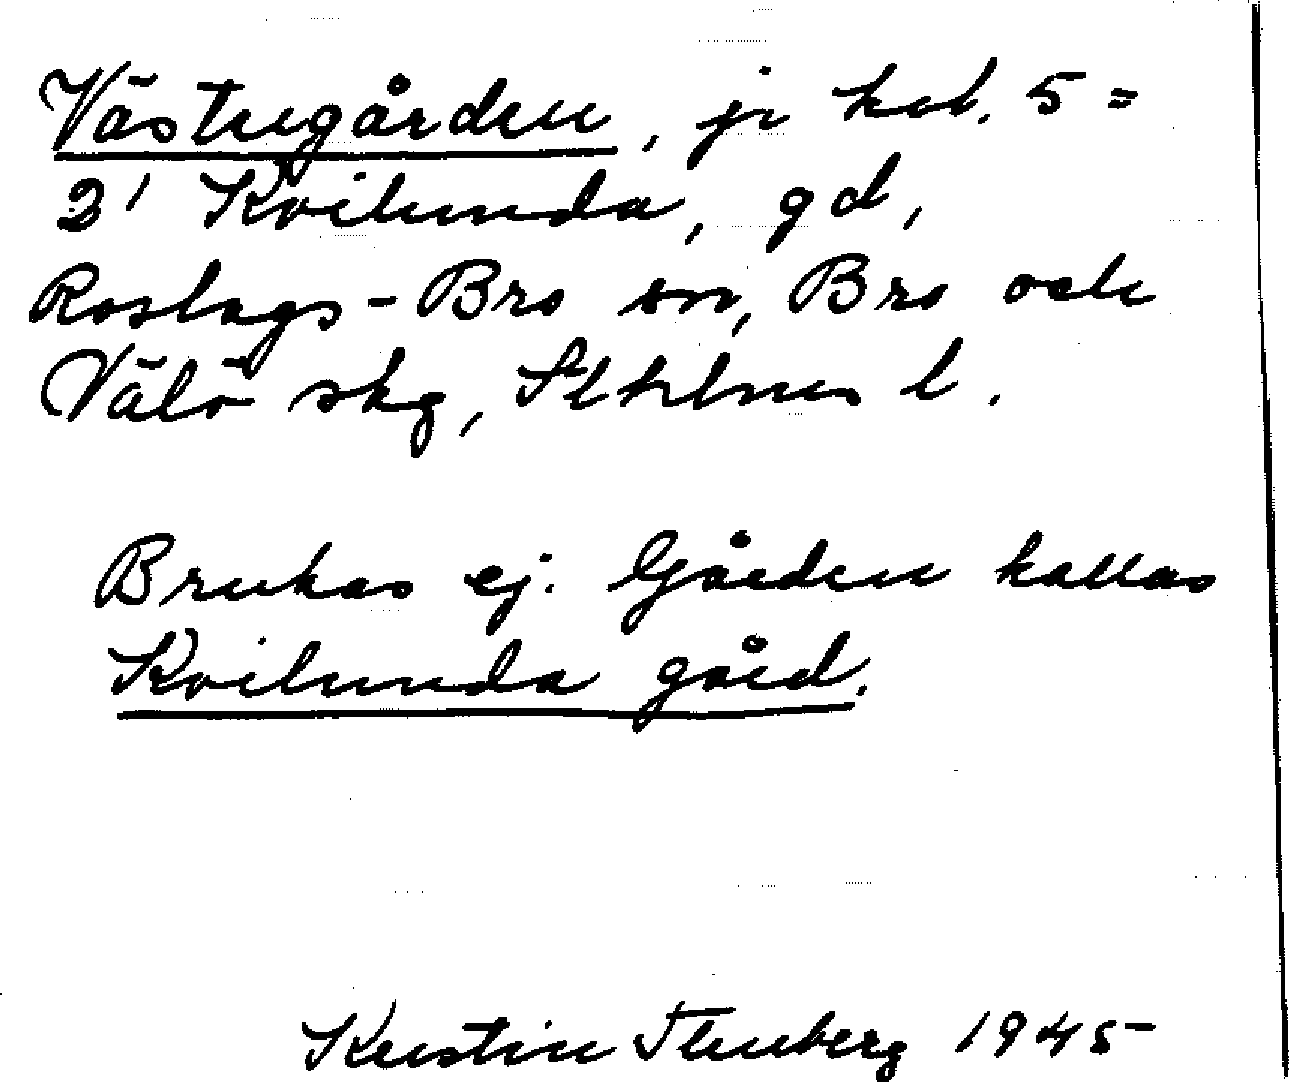 Västregården, jr kab. 5 =
2' Kvilunda, gd,
Roslags-Bro sn, Bro och
Vätö skg, Sthlms l.
Brukas ej. Gården kallas
Kvilunda gård.
Kerstin Stenberg 1945